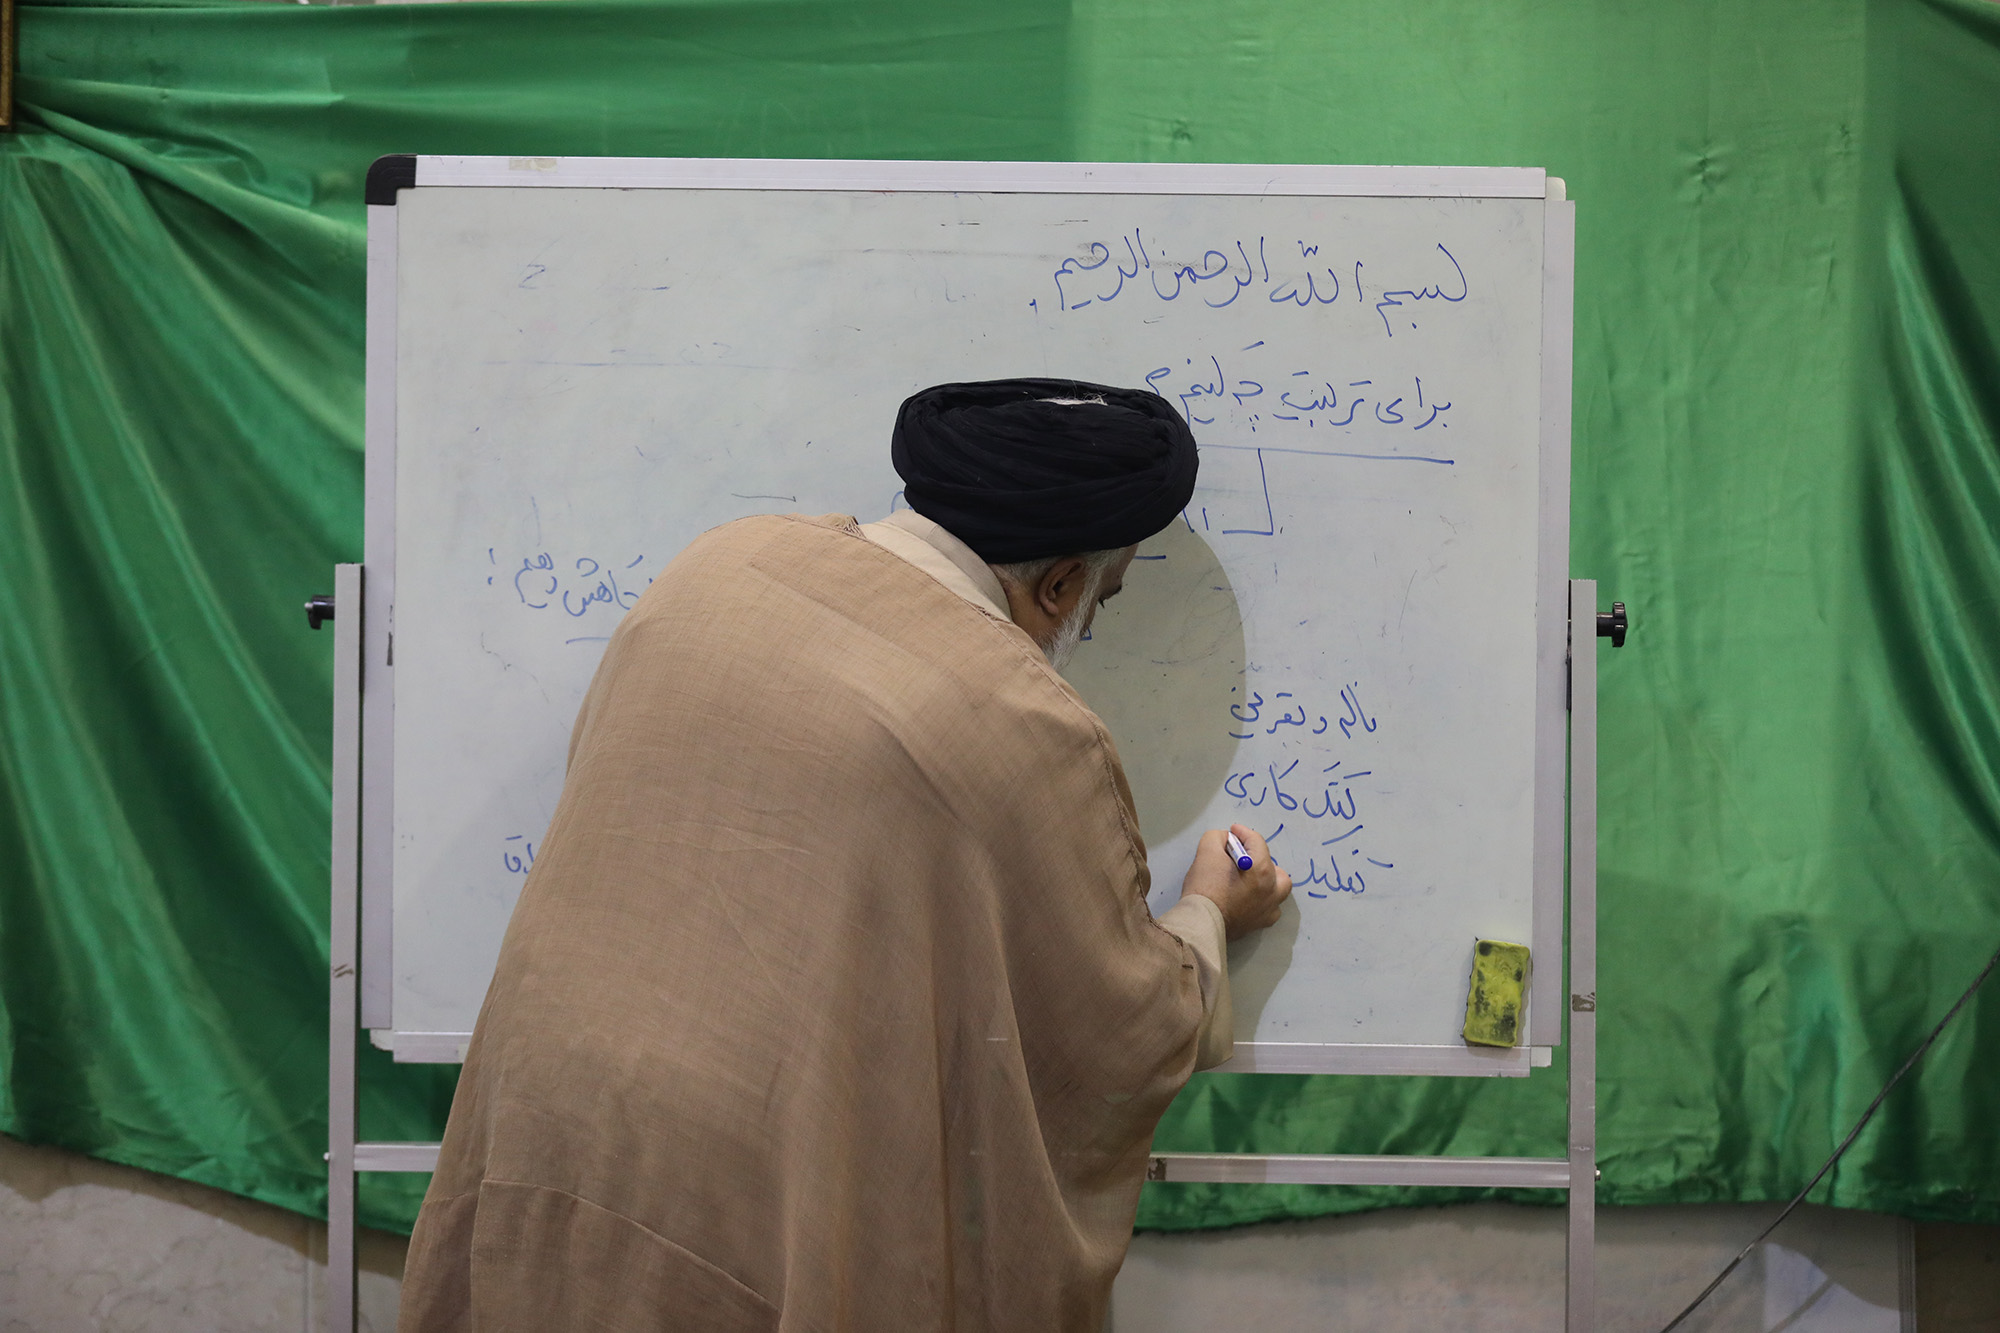 بسم الله الرحمن الرحیم.
برای تربیت چه کنیم
کاهش دهیم:
ناله و نفرین
کتک کاری